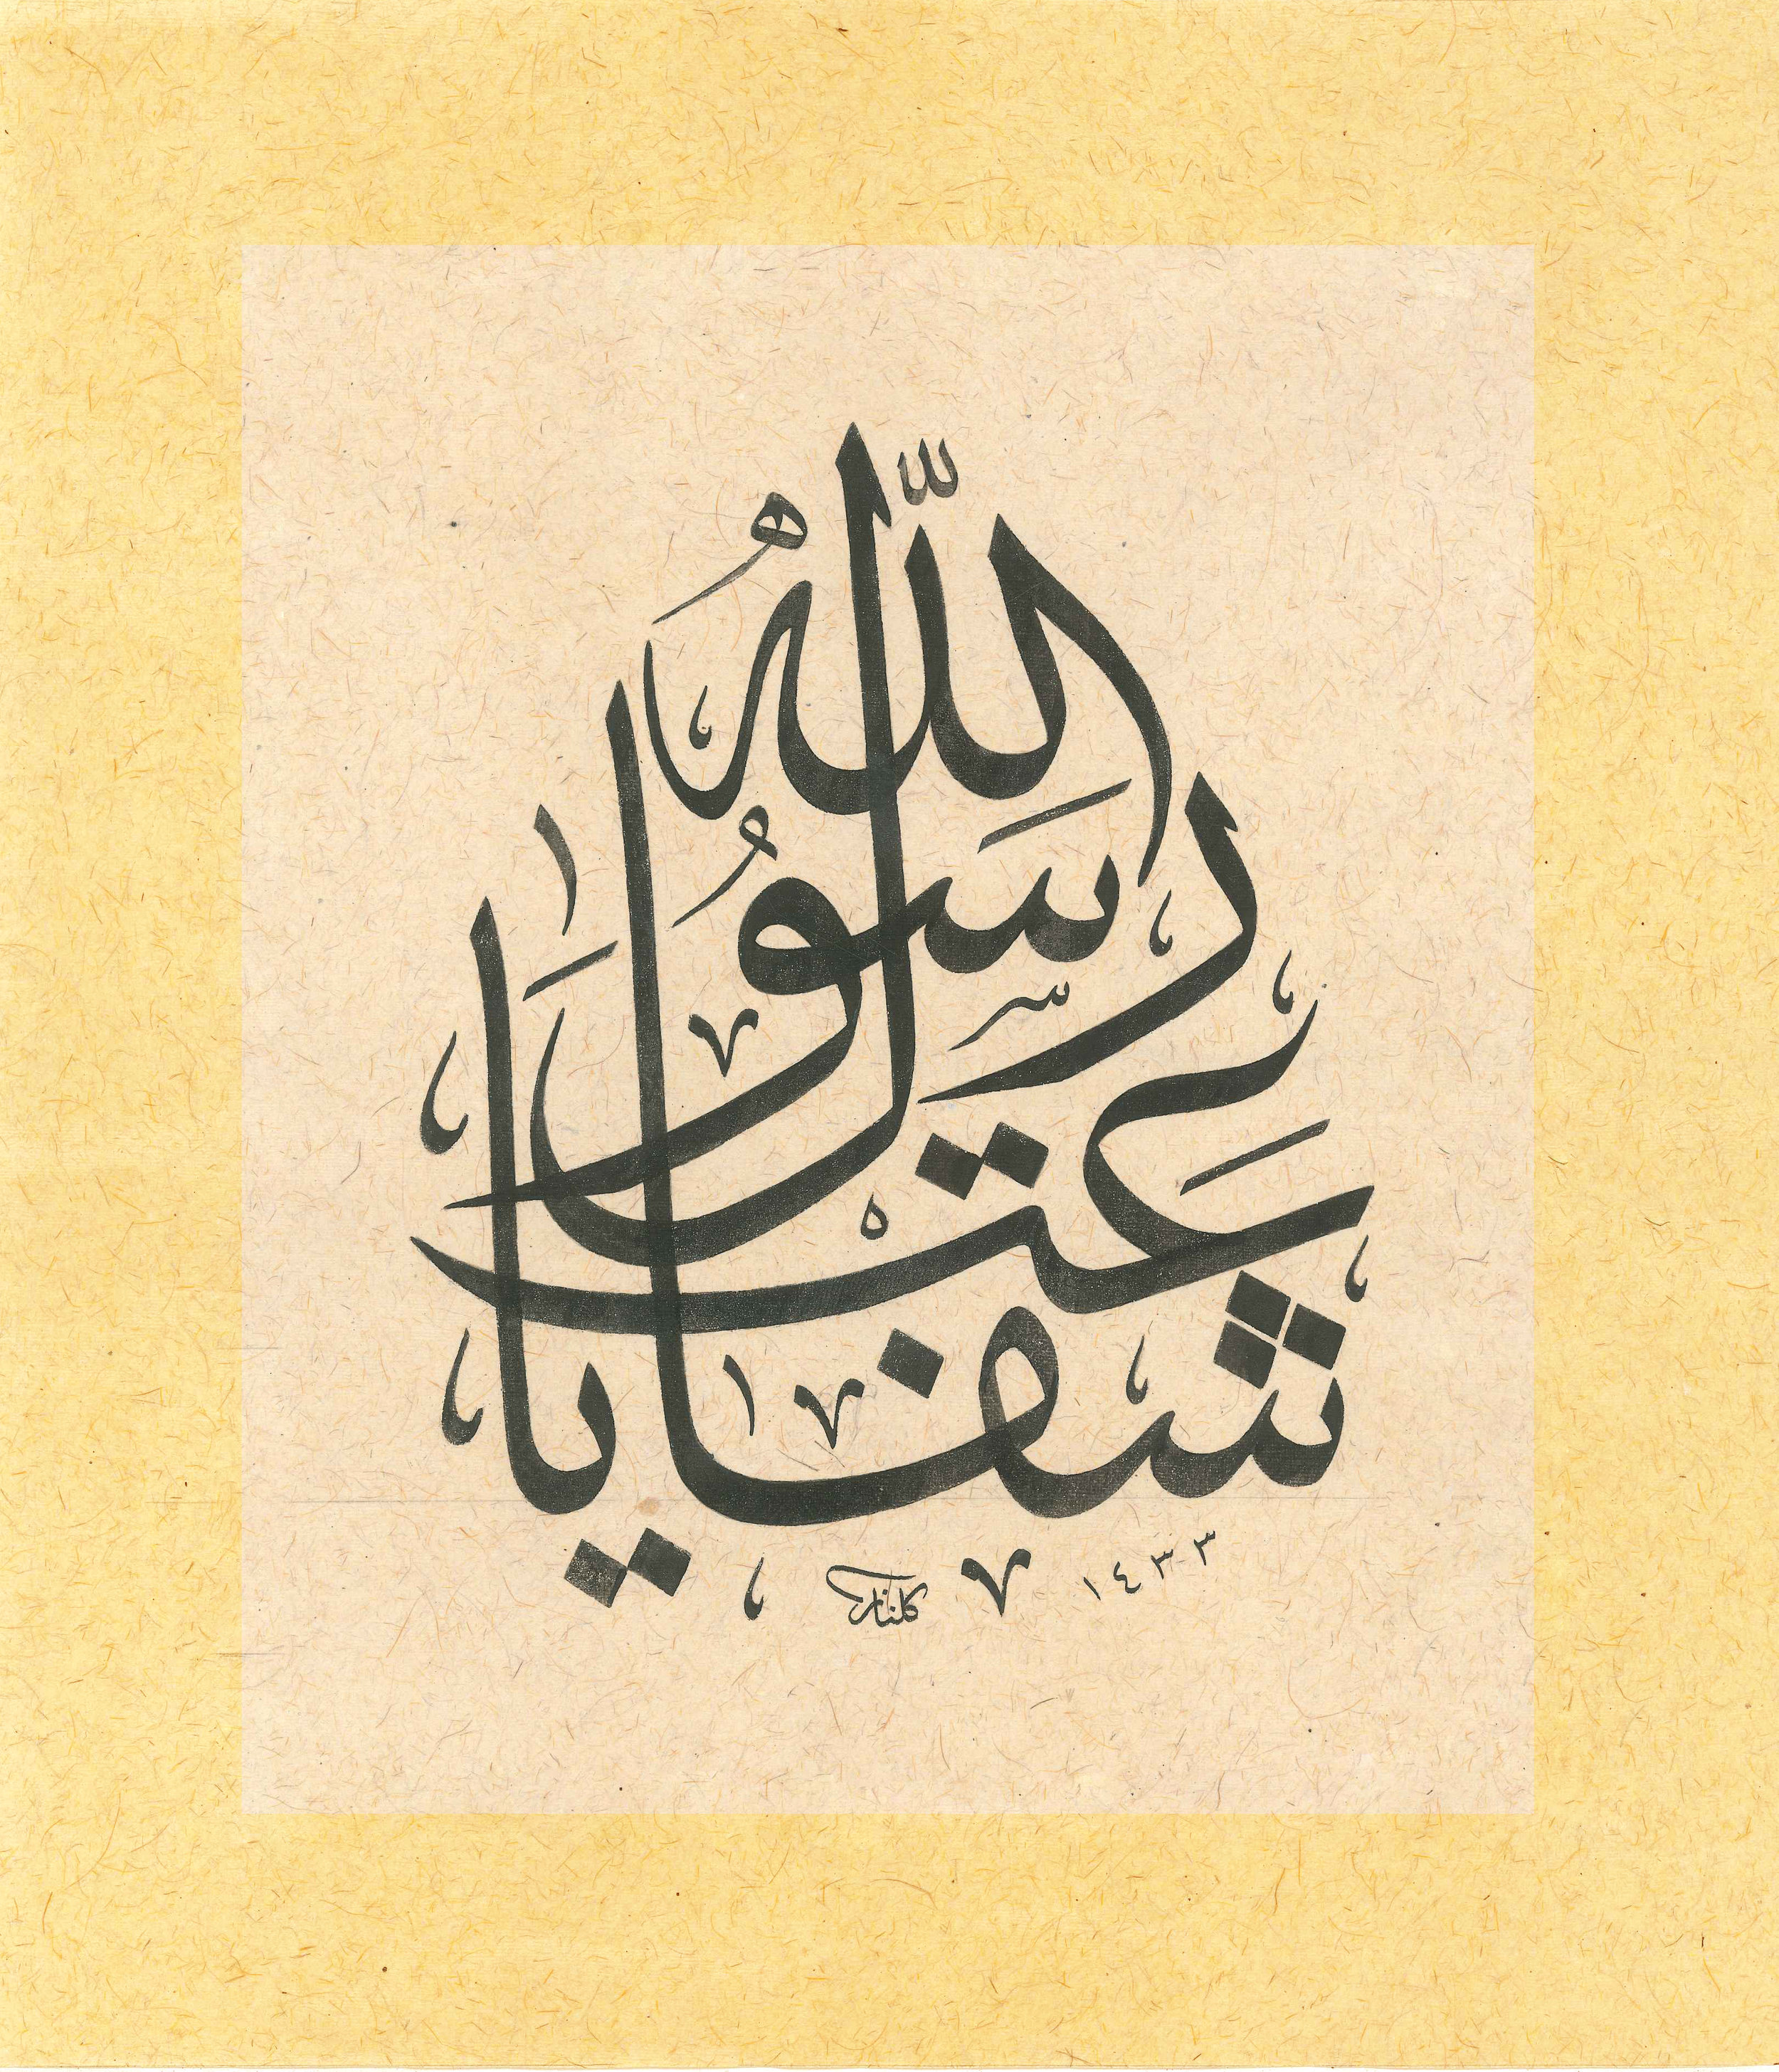 شفاعت يا رسول الله
كلنار
١٤٣٣